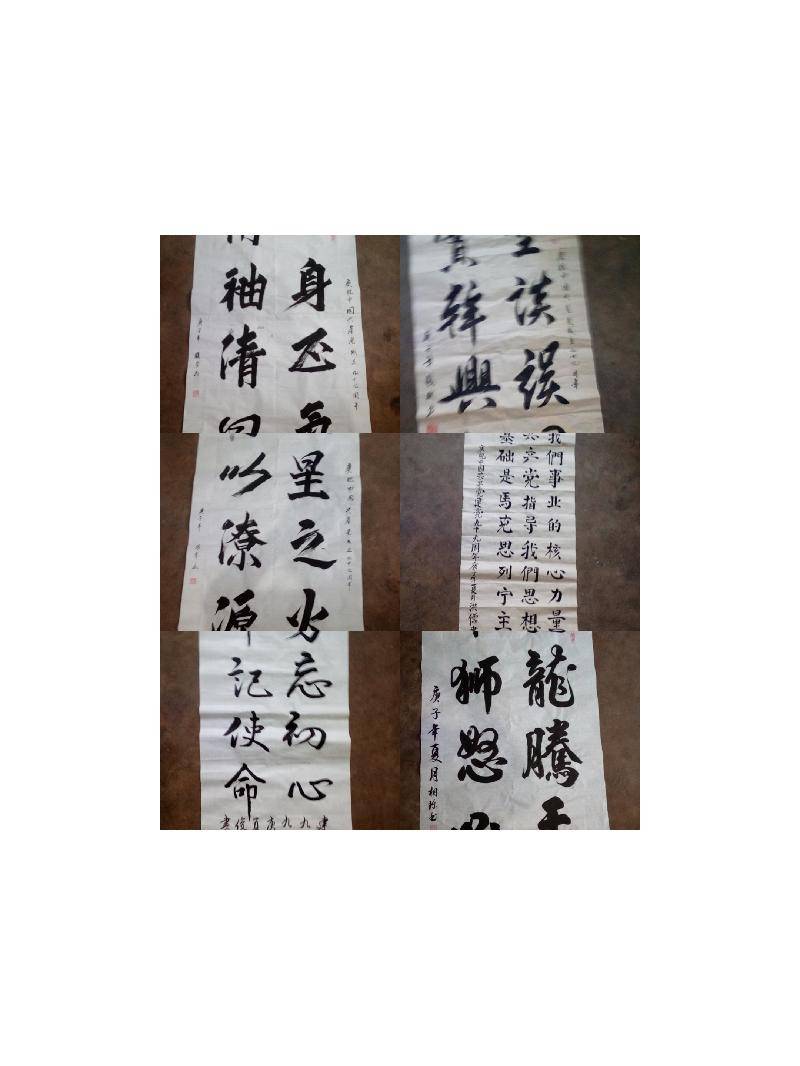 庆祝中国共产党成立九十九周年
身正
袖清
庚子年
庆祝中国
谈误
干兴
庚子年
庆祝中国共产党成立九十九周年
星之火
以潦源
庚子年
我們事业的核心力量
共产党指导我們思想
基础是馬克思列宁主
庆祝中国共产党建党九十九周年庚子年夏月
忘初心
記使命
建九九庚
龍騰
獅怒
庚子年夏月